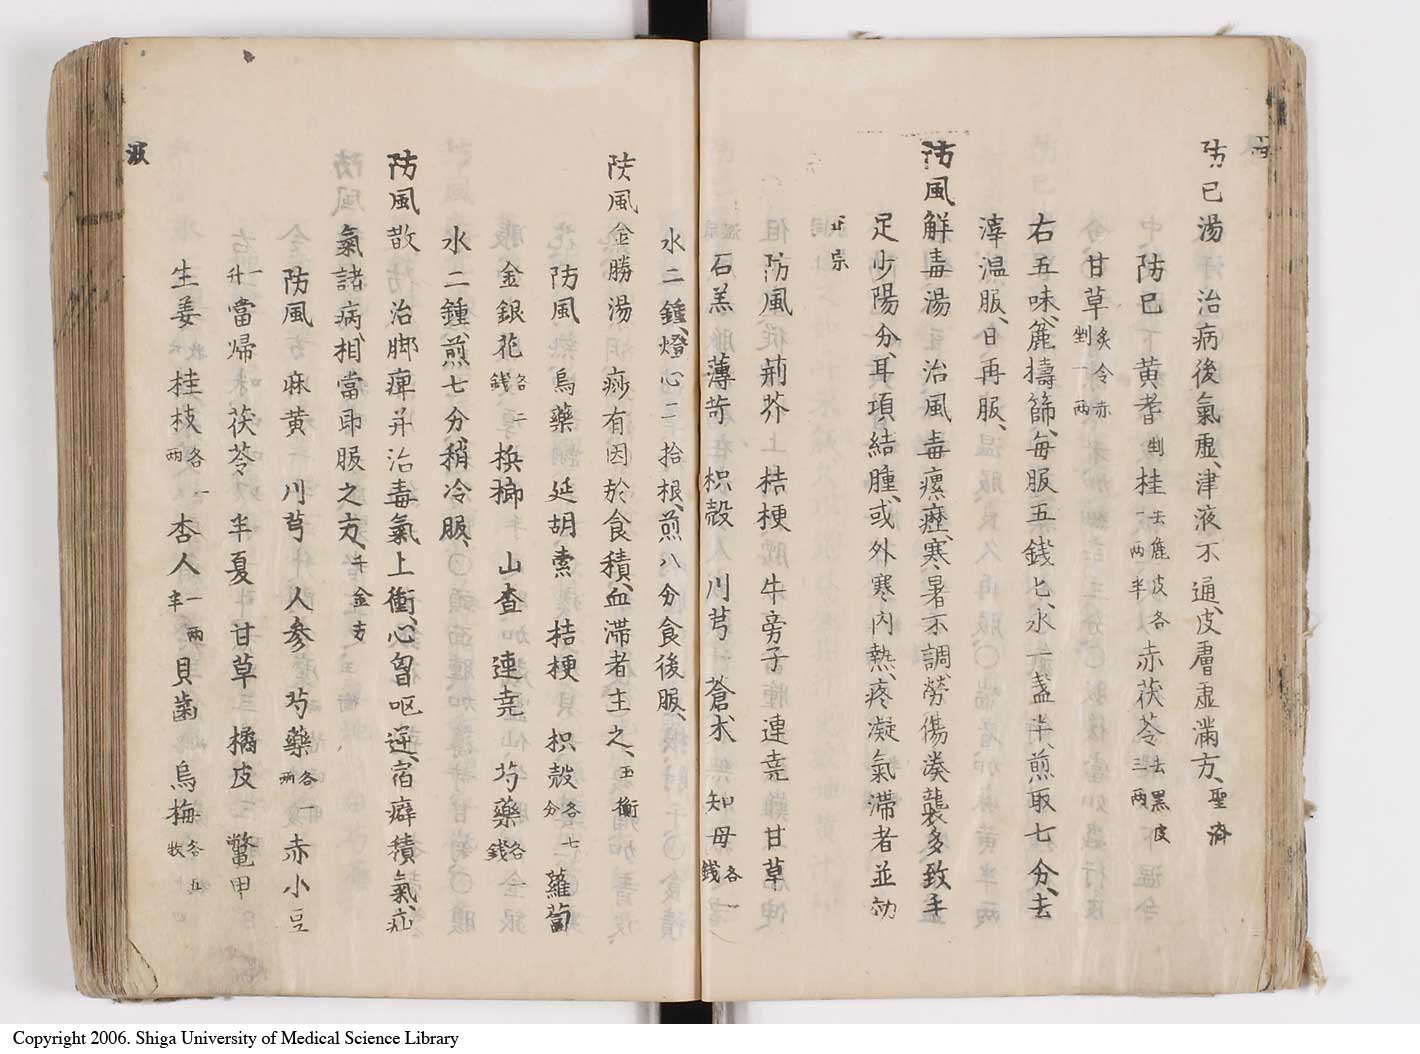 防已湯 治病後氣虛、津液不通、皮膚虛滿方、聖濟
防已 黃耆 剉 桂 去麁皮各一兩半 赤茯苓 去黑皮三兩
甘草 炙令赤剉一兩
右五味、麄擣篩、每服五錢匕、水一盞半、煎取七分、去
滓、溫服、日再服、
防風解毒湯 治風毒瘰癧、寒暑不調、勞傷湊襲、多致手
足少陽分、耳項結腫、或外寒內熱、疼凝氣滯者並効
正宗
防風 荊芥 桔梗 牛旁子 連尭 甘草
石羔 薄苛 枳殼 川芎 蒼朮 知母 各一錢
水二鍾、燈心二拾根、煎八分食後服、
防風金勝湯 痧有因於食積、血滯者主之、玉衡
防風 烏藥 延胡索 桔梗 枳殼 各七分 蘿蔔
金銀花 各二錢 梹榔 山查 連尭 芍藥 各一錢
水二鍾、煎七分稍冷服、
防風散 治脚痺并治毒氣上衝、心胷嘔逆、宿癖積氣、疝
氣諸病、相當即服之方、千金
防風 麻黃 川芎 人參 芍藥 各一兩 赤小豆
一升 當歸 茯苓 半夏 甘草 橘皮 鱉甲
生姜 桂枝 各一兩 杏人 一兩半 貝齒 烏梅 各五枚